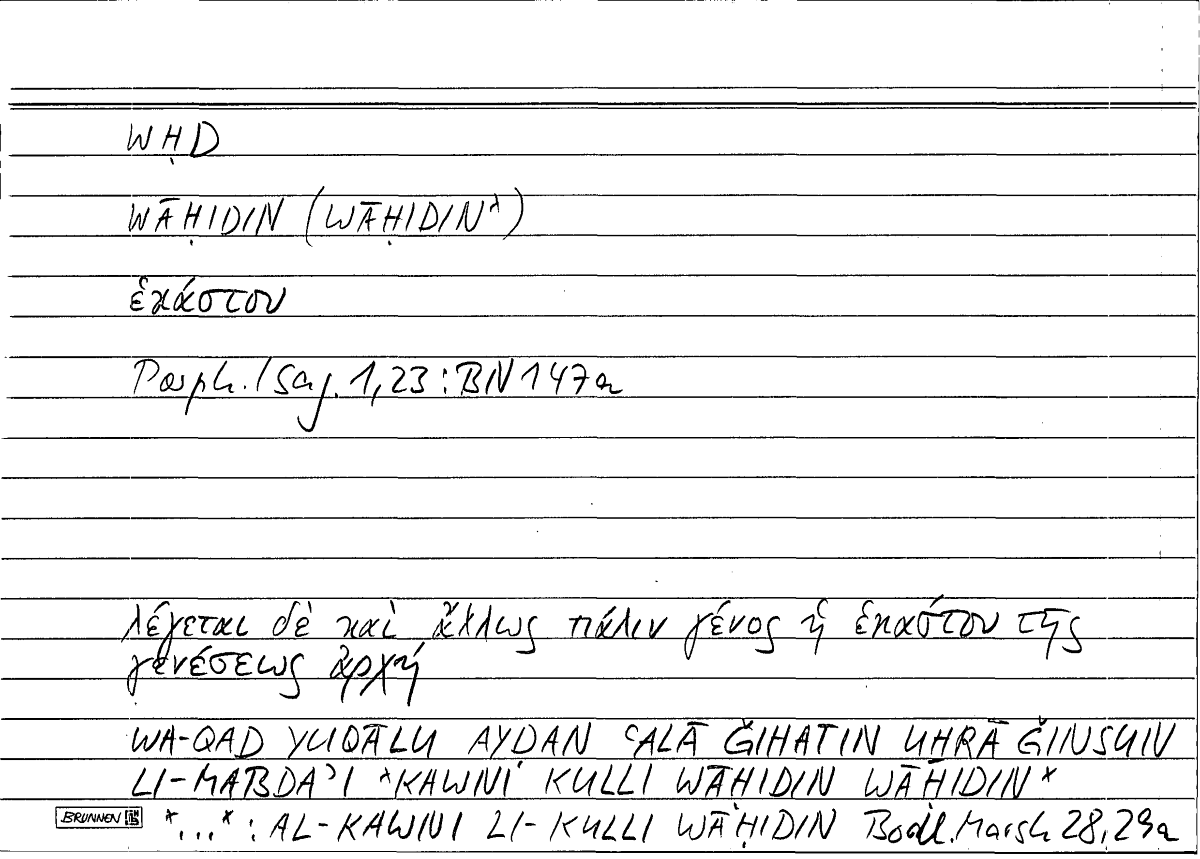 WḤD
WĀḤIDIN (WĀḤIDIN*)
ἑκάστου
Porph. Isag. 1,23 : BN 147a
λέγεται δὲ καὶ ἄλλως πάλιν γένος ἡ ἑκάστου τῆς
γενέσεως ἀρχή
WA-QAD YUQĀLU AYḌAN ʿALĀ ǦIHATIN UḪRĀ ǦINSUN
LI-MABDAʾI *KAWNI KULLI WĀḤIDIN WĀḤIDIN*
BRUNNEN *...* : AL-KAWNI LI-KULLI WĀḤIDIN Bodl. Marsh 28,29a